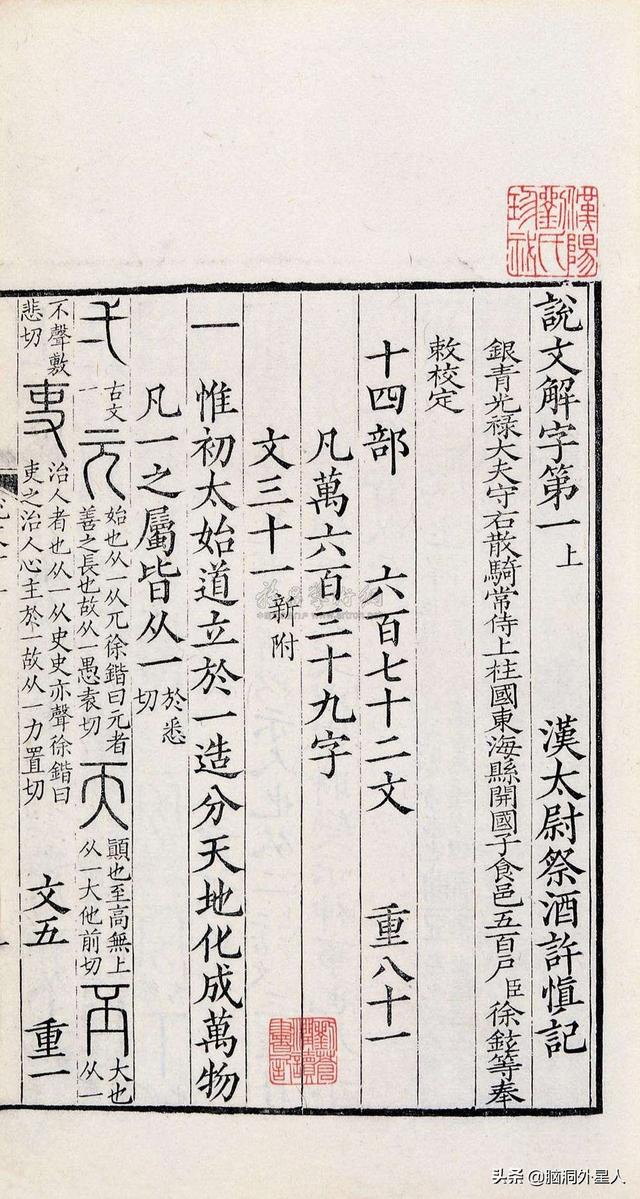 漢陽劉氏珍
說文解字第一上 漢太尉祭酒許慎記
銀青光祿大夫守右散騎常侍上柱國東海縣開國子食邑五百戶臣徐鉉等奉
敕校定
十四部 六百七十二文 重八十一
凡萬六百三十九字
文三十一新附
一 惟初太始道立於一造分天地化成萬物
凡一之屬皆从一於悉切
弌古文一 元始也从一从兀徐鍇曰元者善之長也故从一愚袁切 天顚也至高無上从一大他前切 丕大也从一
不聲敷悲切 吏治人者也从一从史史亦聲徐鍇曰吏之治人心主於一故从一力置切 文五 重一
头条 @脑洞外星人